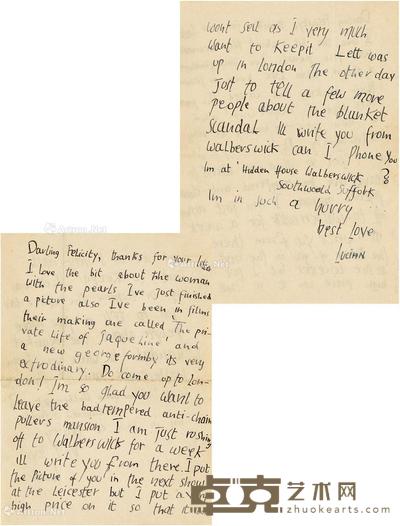 Darling Felicity, thanks for your letter
I love the bit about the woman
with the pearls I've just finished
a picture also I've been in films
their making are called 'The pri-
vate life of Jaqueline' and
a new georgeformby its very
extrodinary. Do come up to Lon-
don! Im so glad you want to
Leave the badtempered anti-chain
pullers mansion I am just rushing
off to Walberswick for a week
ill write you from there. I put
the Picture of you in the next show
at the Leicester but I put a v
high price on it so that it
wont sell as I very much
want to keepit Lett was
up in London The other day
Just to tell a few more
people about the blunket
Scandal Ill write you from
Walberswick can I Phone you
Im at 'Hidden House Walberswick ?
Southwold Suffolk
Im in such a hurry
best love
Lucian
卓克艺术网
zhuokearts.com